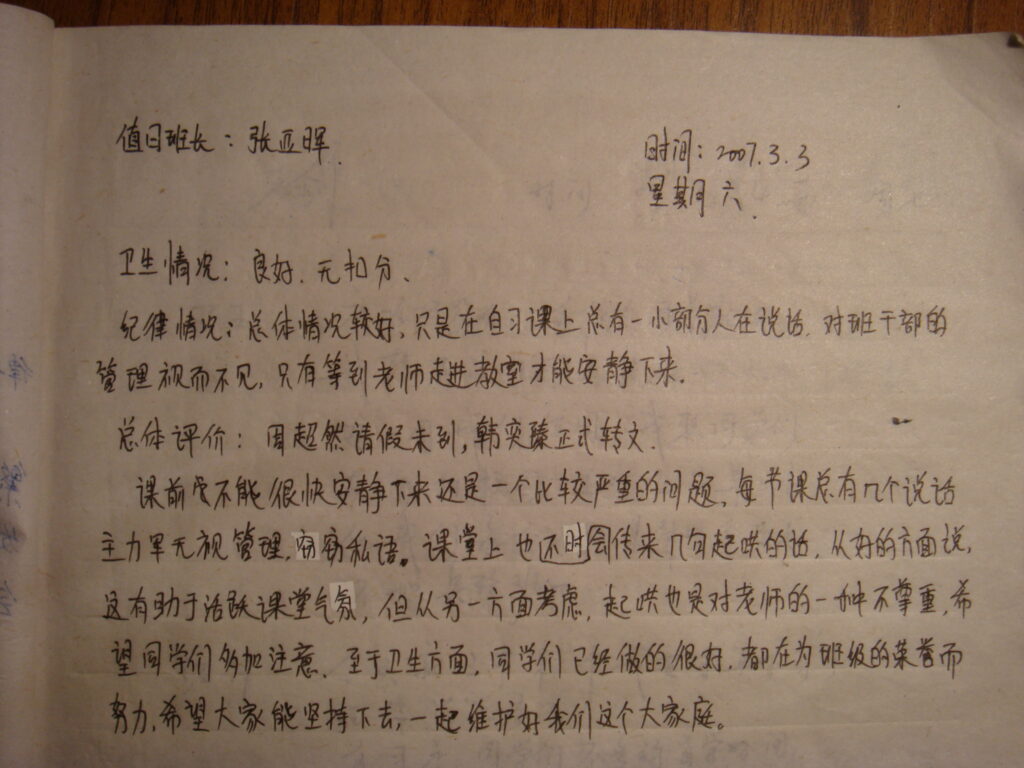 值日班长：张亚晖.
时间：2007.3.3
星期六.
卫生情况：良好.无扣分、
纪律情况：总体情况较好,只是在自习课上总有一小部分人在说话.对班干部的
管理视而不见,只有等到老师走进教室才能安静下来.
总体评价：周超然请假未到,韩奕臻正式转文.
课前定不能很快安静下来还是一个比较严重的问题,每节课总有几个说话
主力军无视管理,窃窃私语。课堂上也还时会传来几句起哄的话.从好的方面说,
这有助于活跃课堂气氛,但从另一方面考虑,起哄也是对老师的一种不尊重,希
望同学们多加注意.至于卫生方面,同学们已经做的很好,都在为班级的荣誉而
努力,希望大家能坚持下去,一起维护好我们这个大家庭。